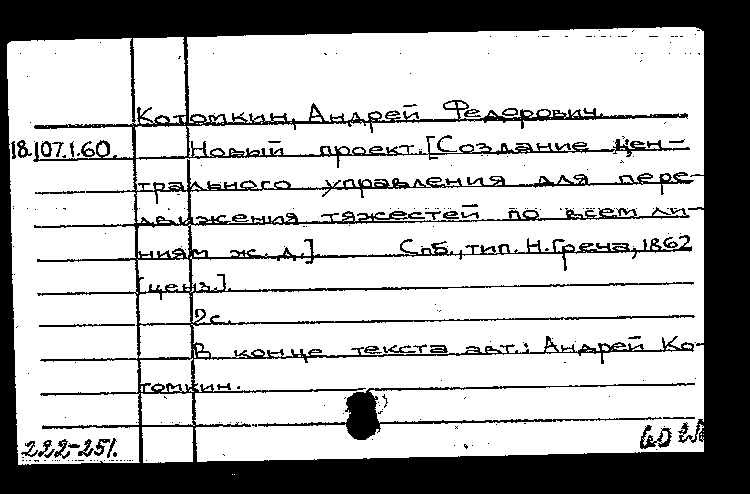 Котомкин, Андрей Федорович.
18.107.1.60. Новый проект. [Создание цен-
трального управления для пере-
движения тяжестей по всем ли-
ниям ж. д.] Спб., тип. Н. Греча, 1862
[ценз.].
2с.
В конце текста авт.: Андрей Ко-
томкин.
222-251.